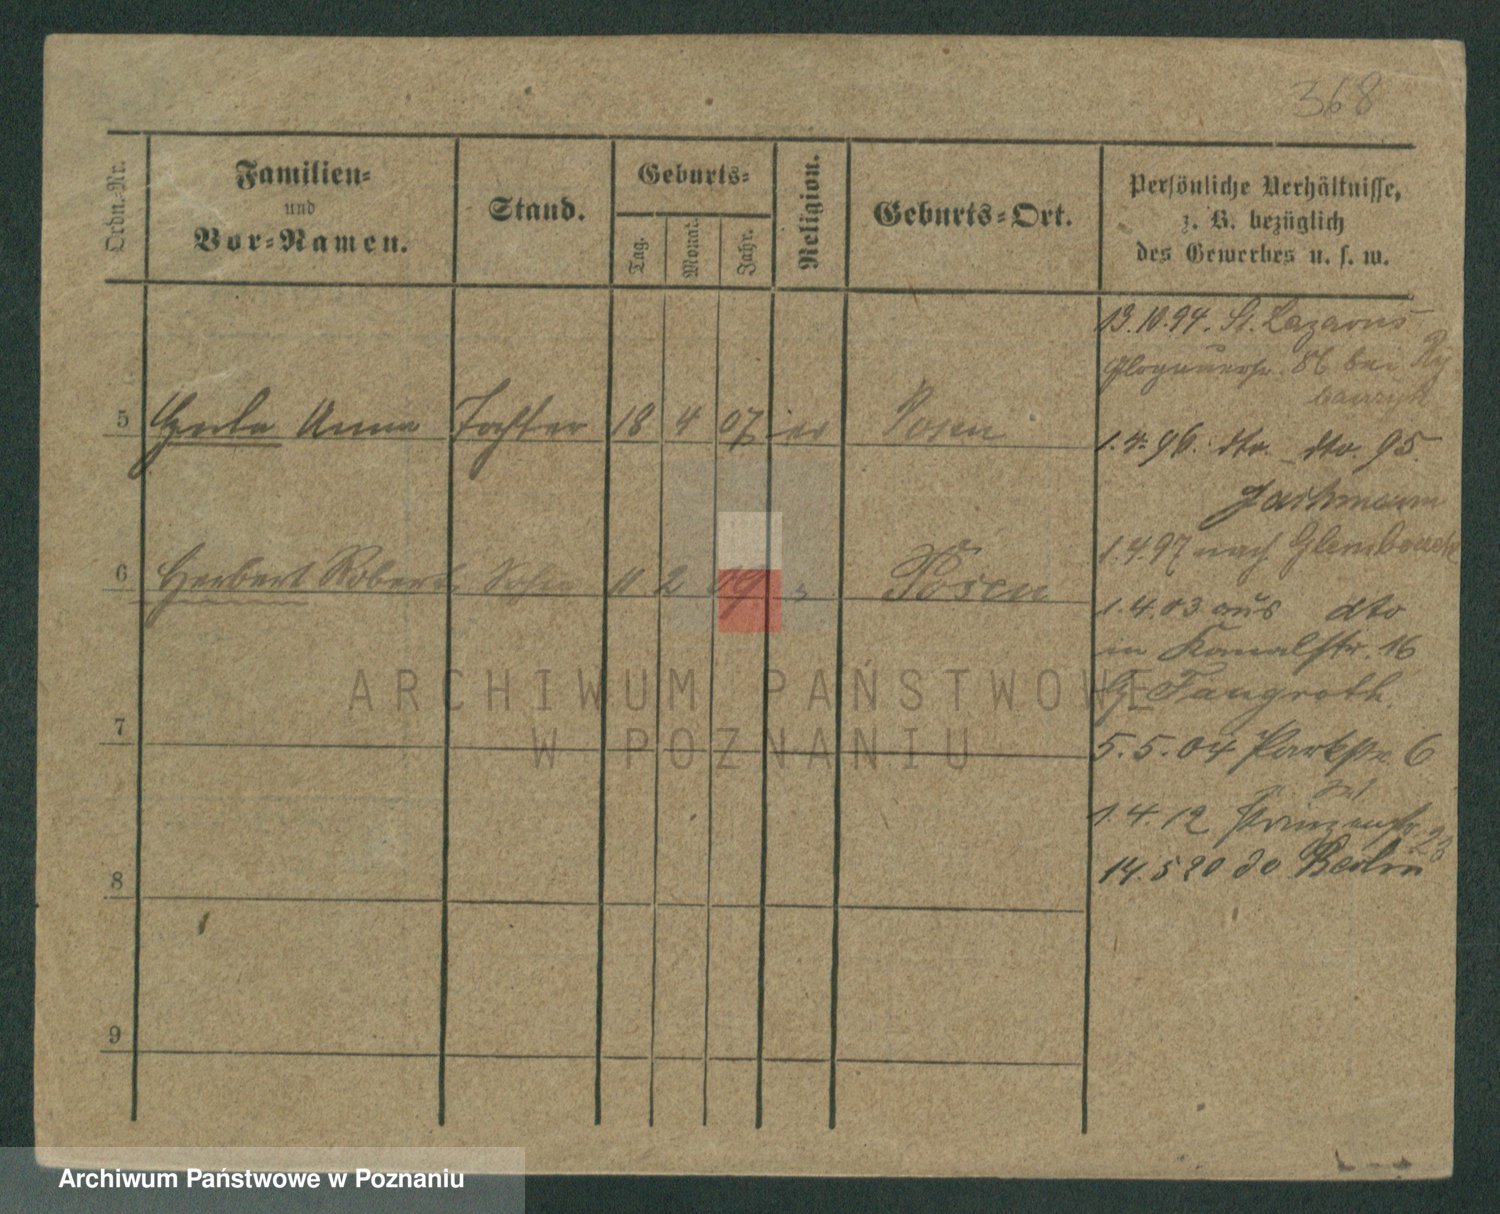 368
Ordn.-Nr.
Familien-
und
Vor-Namen.
Stand.
Geburts-
Tag.
Monat.
Jahr.
Religion.
Geburts-Ort.
Persönliche Verhältnisse,
z. B. bezüglich
des Gewerbes u. s. w.
13.10.94. St. Lazarus
Glogauerstr. 86 bei
5 Gerda Anna Tochter 18 4 07 ev Posen
1.4.96. dto. dto. 95.
Jachmann
1.4.97 nach
6 Herbert Robert Sohn 11 2 09 " Posen
1.4.03 aus dto
in Kanalstr. 16
5.5.04 Parkstr. 6
1.4.12 Prinzenstr. 23
14.5 20 do Berlin
7
8
9
ARCHIWUM PAŃSTWOWE
W POZNANIU
Archiwum Państwowe w Poznaniu